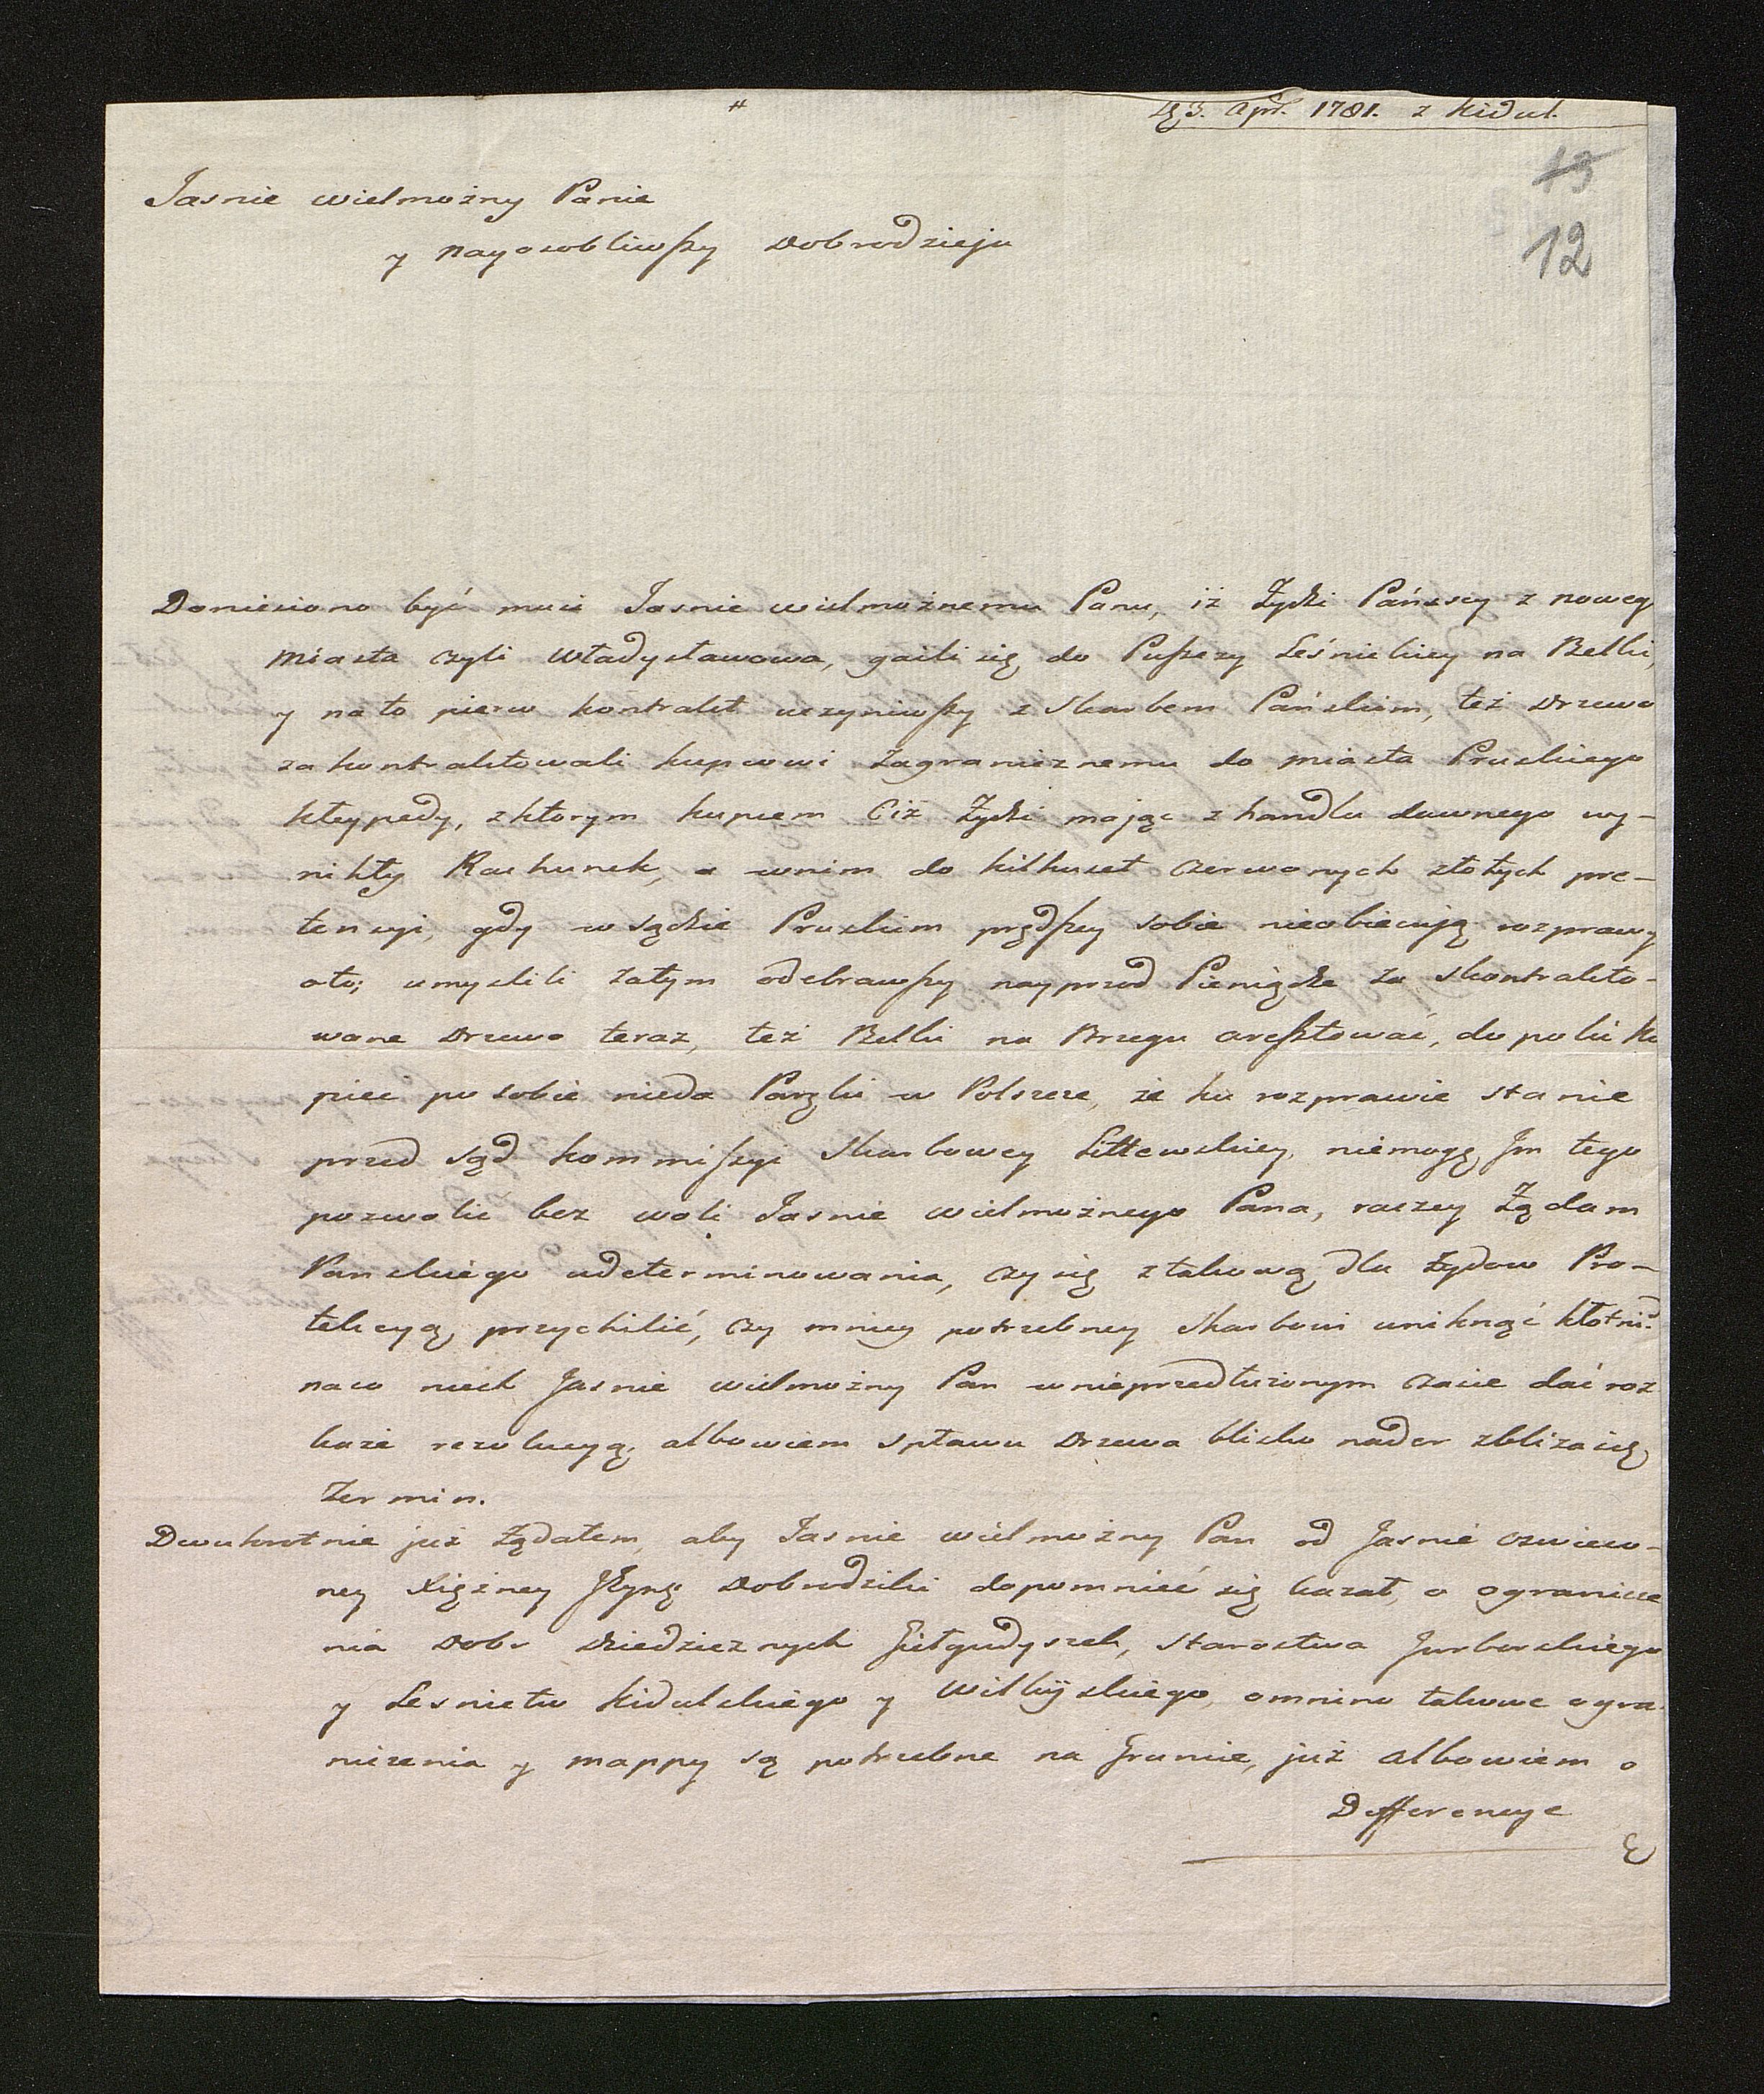 D 3. Apr. 1781. z Kidul.
13
12
Jasnie wielmożny Panie
y nayosobliwszy Dobrodzieju
Doniesiono być musi Jasnie wielmożnemu Panu, iż Żydzi Pańscy z nowego
Miasta czyli Władysławowa, gaili się do Puszczy Leśnickiey na Belki,
y na to pierw kontrakt uczyniwszy z Skarbem Pańskim, też Drzewo
zakontraktowali kupcowi zagranicznemu do miasta Pruskiego
Kłeypedy, z ktorym kupcem Ciż Żydzi mając z handlu dawnego wy-
nikły Rachunek, a w nim do kilkuset czerwonych złotych pre-
tensyi, gdy w sądzie Pruskim prędszey sobie nieobiecują rozprawy
oto; umyslili zatym odebrawszy nayprzod Pieniądze za skontrakto-
wane Drzewo teraz, też Belki na Brzegu aresztować, do poki Ku
piec po sobie nieda Paręki w Polszcze, że ku rozprawie stanie
przed sąd kommiszyi Skarbowey Littewskiey, niemogę Jm tego
pozwolic bez woli Jasnie wielmożnego Pana, raczey Żądam
Panskiego udeterminowania, czy się z takową dla Żydow Pro-
tekcyą przychilić, czy mniey potrzebney Skarbowi uniknąć kłotni.
na co niech Jasnie wielmożny Pan w nieprzedłużonym czasie dać roz
każe rezolucyą, albowiem spławu Drzewa blisko nader zbliża się
Termin.
Dwukrotnie już Żądałem, aby Jasnie wielmożny Pan od Jasnie oswieco-
ney Xiężney Dobrodziki dopomnieć się kazał, o ogranicze
nia Dobr Dziedzicznych Giełgudyszek, Starostwa Jurborskiego
y Lesnictw Kidulskiego y Wilkijskiego, omnino takowe ogra-
niczenia y mappy są potrzebne na Gruncie, już albowiem o
Differencye